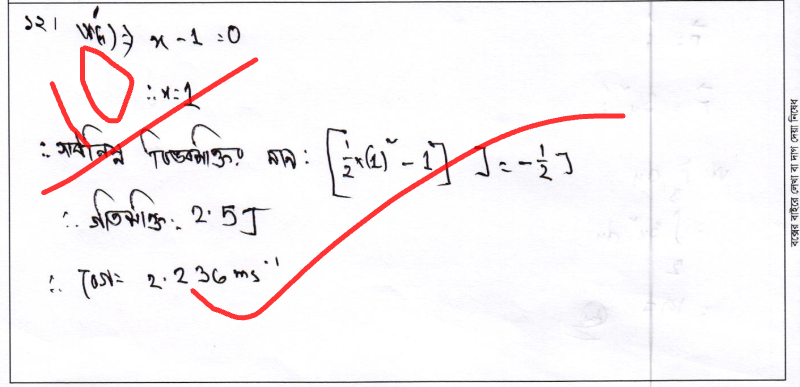 ১২। U′(x) ⇒ x - 1 = 0
∴ x = 1
∴ সর্বনিম্ন বিভবশক্তির মান : [½×(1)² - 1] J = -½ J
∴ গতিশক্তি : 2.5J
∴ বেগ = 2.236 ms⁻¹
বক্সের বাইরে লেখা বা দাগ দেয়া নিষেধ